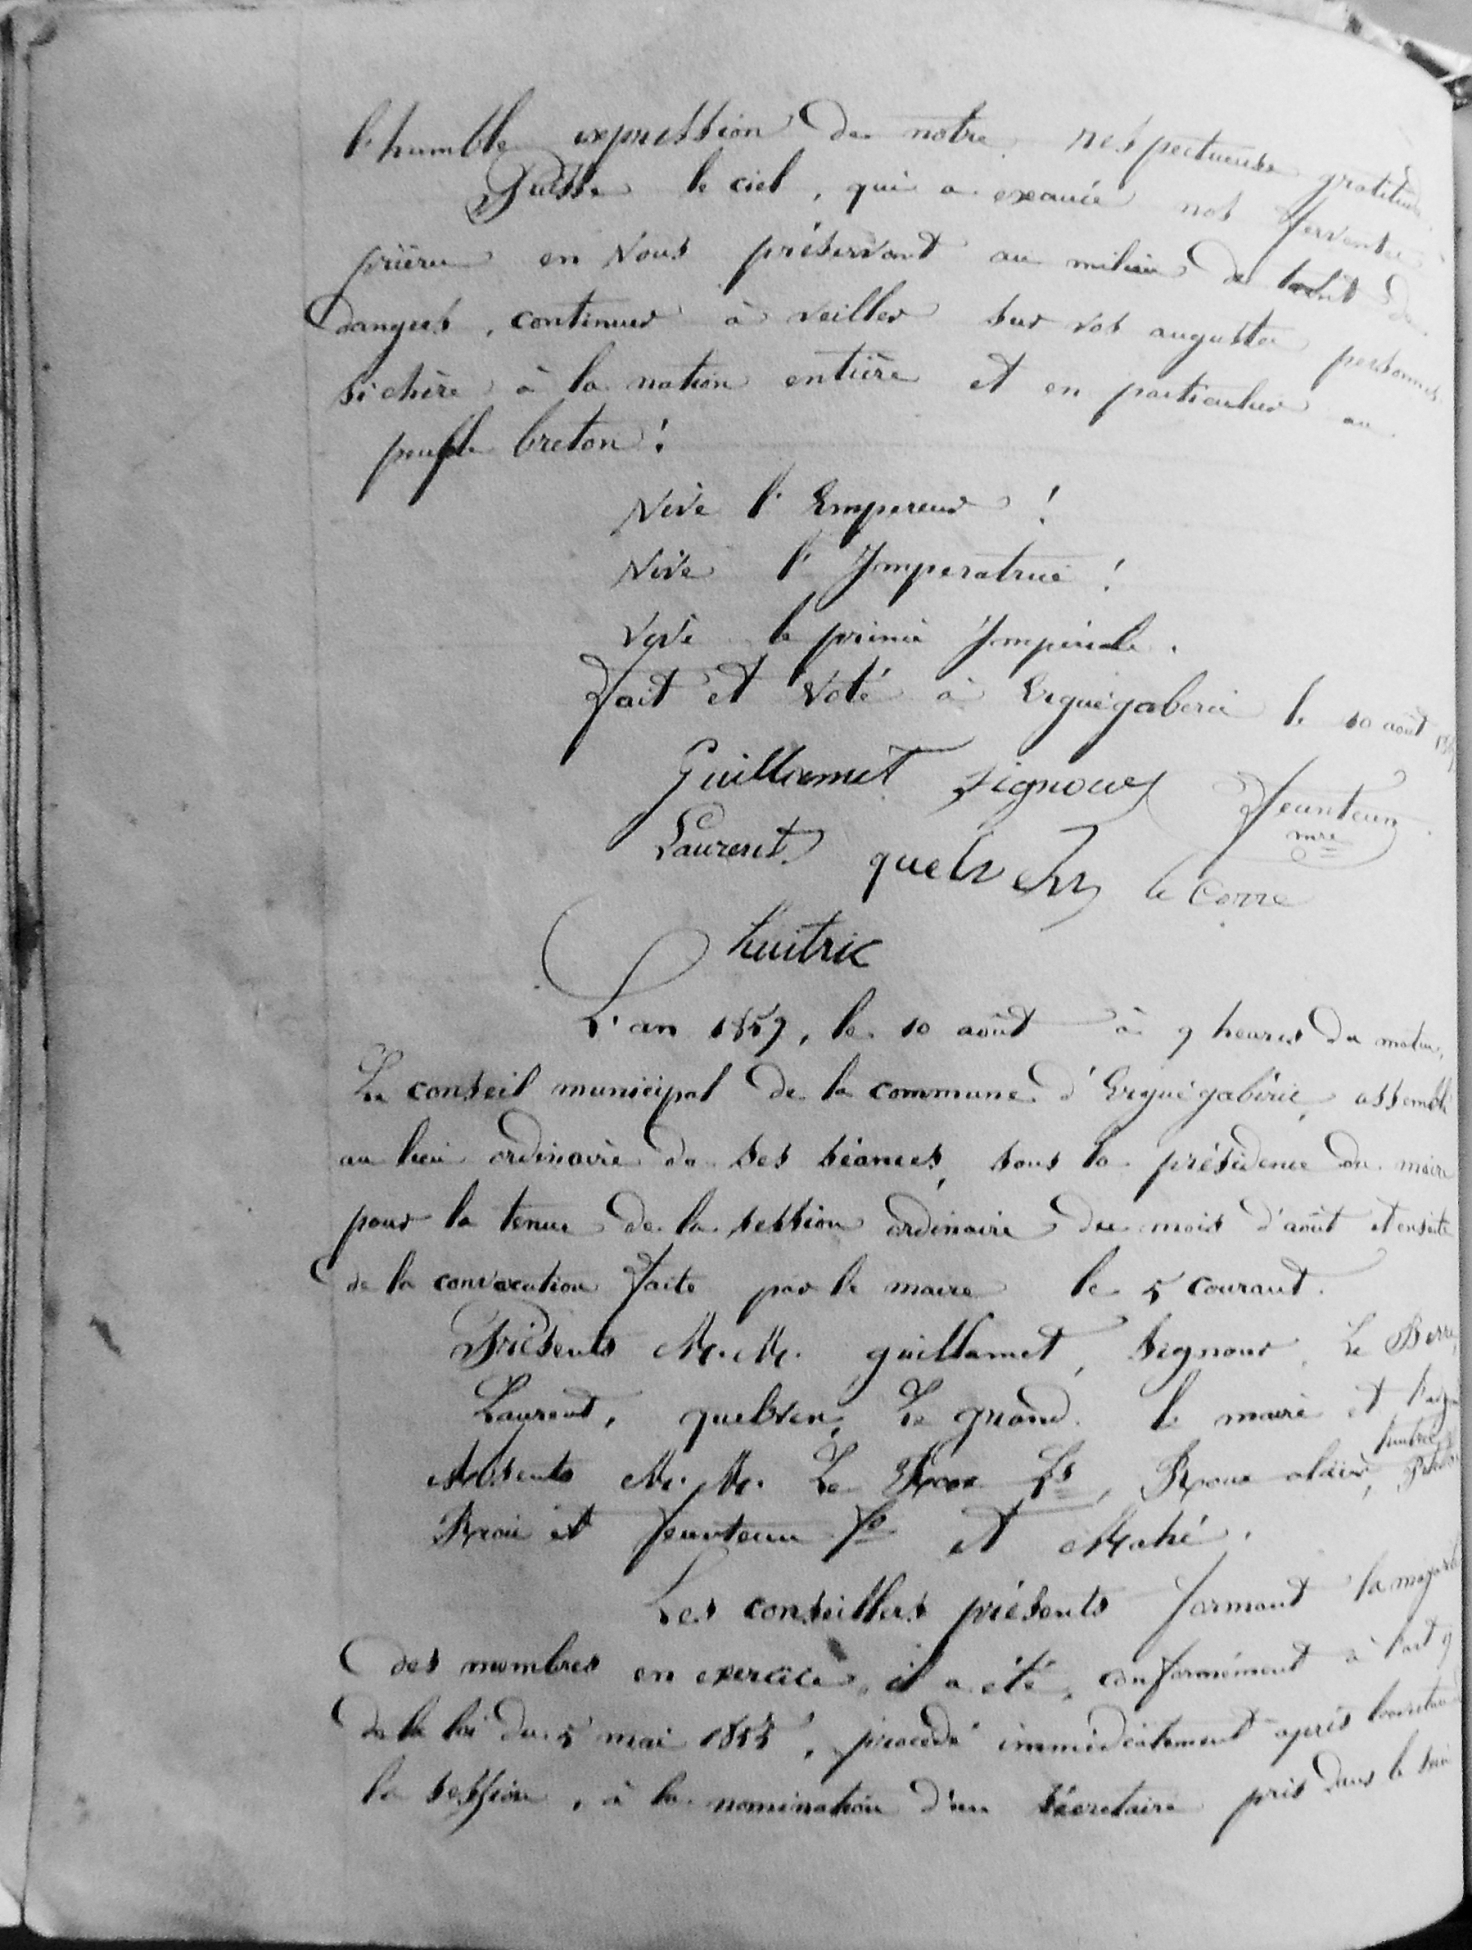 l'humble expression de notre respectueuse gratitude.
Puisse le ciel, qui a exaucé nos ferventes
prières en vous préservant au milieu de tant de
dangers, continuer à veiller sur vos augustes personnes
si chère à la nation entière et en particulier au
peuple breton!
Vive l'Empereur!
Vive l'Imperatrice!
Vive le prince Impériale.
Fait et voté à Erguégaberic le 10 août
Guillamet Signour Feunteun
mre
Laurent quelven le Corre
huitric
L'an 1859, le 10 août à 9 heures du matin,
Le conseil municipal de la commune d'Erguégabéric, assemblé
au lieu ordinaire de ses séances, sous la présidence du maire
pour la tenue de la session ordinaire du mois d'août et ensuite
de la convocation faite par le maire le 5 courant.
Présents M.M. guillamet, Signour, Le Berre,
Laurent, quelven, Le grand, le maire et
huitric
Absents M.M. Le Roux Fs, Roux alain,
et feunteun et Mahé.
Les conseillers présents formant la majorité
des membres en exercice, il a été, conformément à l'art 9
de la loi du 5 mai 1855, procédé immédiatement après
la session, à la nomination d'un sécretaire pris dans le sein